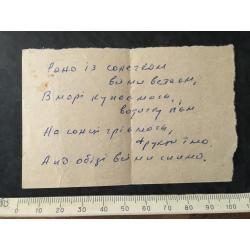 Рано із сонечком
вийи встаєм,
В морі купаємось,
водичку п'єм
На сонці гріємось,
фрукти їмо.
А до обіді вийи спимо.
0 10 20 30 40 50 60 70 80 90 100